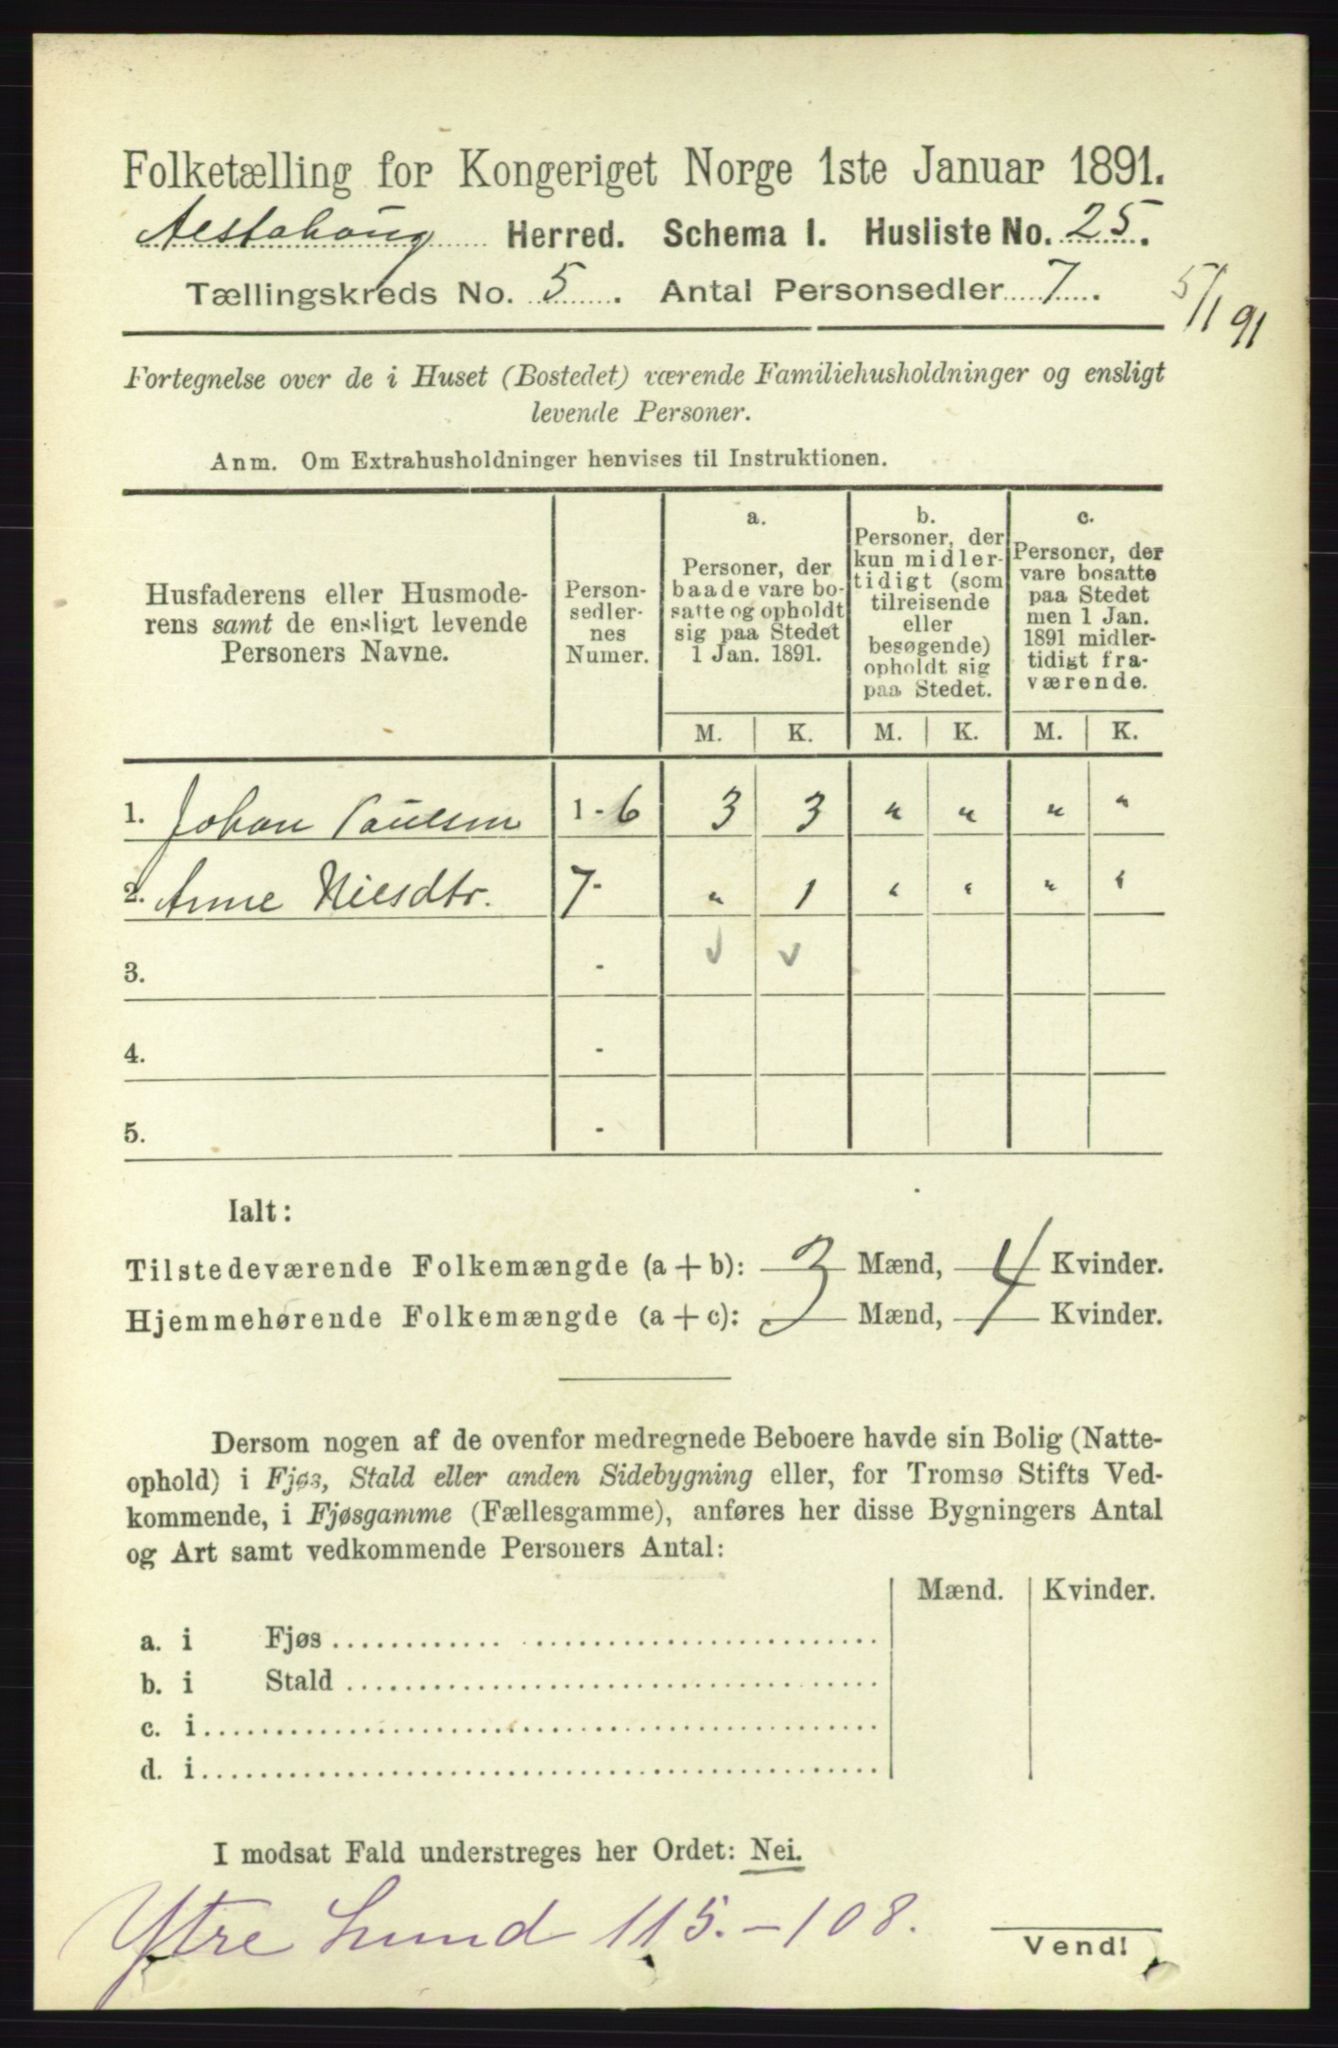 Folketælling for Kongeriget Norge 1ste Januar 1891.
Alstahoug Herred. Schema I. Husliste No. 25.
Tællingskreds No. 5. Antal Personsedler 7.
5/1 91
Fortegnelse over de i Huset (Bostedet) værende Familiehusholdninger og ensligt
levende Personer.
Anm. Om Extrahusholdninger henvises til Instruktionen.
Husfaderens eller Husmode-
rens samt de ensligt levende
Personers Navne.
Person-
sedler-
nes
Numer.
a.
Personer, der
baade vare bo-
satte og opholdt
sig paa Stedet
1 Jan. 1891.
b.
Personer, der
kun midler-
tidigt (som
tilreisende
eller
besøgende)
opholdt sig
paa Stedet.
c.
Personer, der
vare bosatte
paa Stedet
men 1 Jan.
1891 midler-
tidigt fra-
værende.
M. K. M. K. M. K.
1. Johan Paulsen 1 - 6 3 3 " " " "
2. Anne Nilsdtr. 7 - " 1 " " " "
3. -
4. -
5. -
Ialt:
Tilstedeværende Folkemængde (a + b): 3 Mænd, 4 Kvinder.
Hjemmehørende Folkemængde (a + c): 3 Mænd, 4 Kvinder.
Dersom nogen af de ovenfor medregnede Beboere havde sin Bolig (Natte-
ophold) i Fjøs, Stald eller anden Sidebygning eller, for Tromsø Stifts Ved-
kommende, i Fjøsgamme (Fællesgamme), anføres her disse Bygningers Antal
og Art samt vedkommende Personers Antal:
Mænd. Kvinder.
a. i Fjøs
b. i Stald
c. i
d. i
I modsat Fald understreges her Ordet: Nei.
Ytre Lund 115. - 108.
Vend!